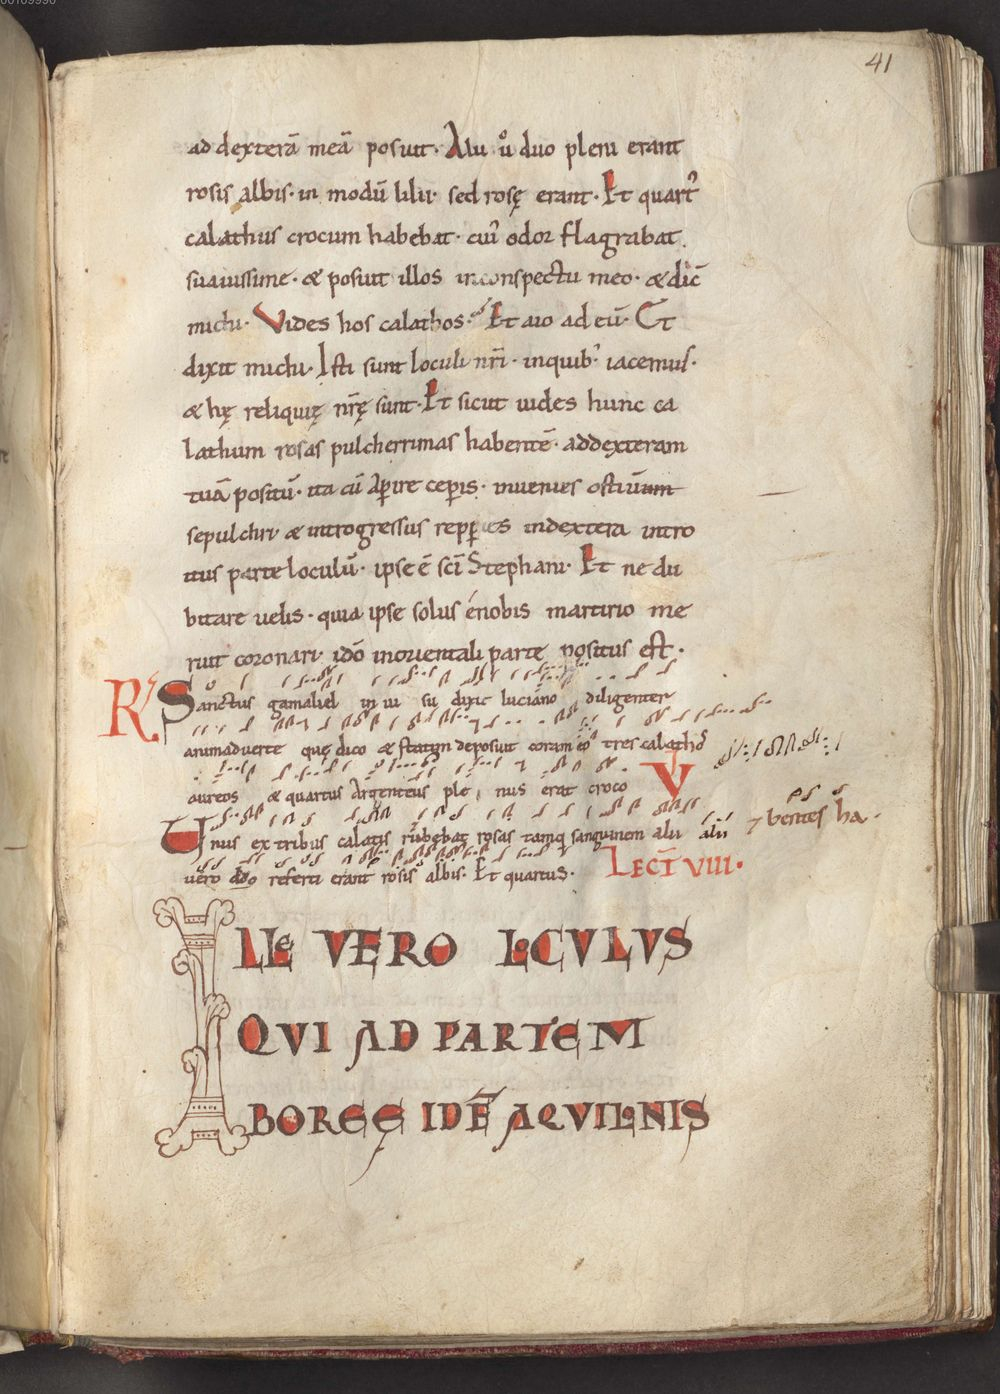 41
ad dexterā meā posuit. Alii ů duo pleni erant
rosis albis. in modū lilii. sed rosę erant. Et quart᾿
calathus crocum habebat. cui᾿ odor flagrabat
suauissime. & posuit illos inconspectu meo. & dic̄
michi. Vides hos calathos. Et aio ad eū. Et
dixit michi. Isti sunt loculi nr̄i. inquib᾿ iacemus.
& hę reliquię nr̄ę sunt. Et sicut uides hunc ca
lathum rosas pulcherrimas habentē. addexteram
tuā positū. ita cū aperire ceperis. inuenies ostiū
sepulchri & introgressus repperies indextera intro
itus parte loculū. ipse ē sc̄i Stephani. Et ne du
bitare uelis. quia ipse solus énobis martirio me
ruit coronari. idō inorientali parte positus est.
R Sanctus gamaliel in ui su dixit luciano diligenter
animaduerte quę dico & statim deposuit coram eo tres calathos
aureos & quartus Argenteus ple nus erat croco V
Vnus ex tribus calatis rubebat rosas tamq sanguinem alii alii
bentes ha.
uero duo referti erant rosis albis. Et quartus. LECT̄ VIII.
ILLE VERO LOCVLVS
QVI AD PARTEM
BOREĘ IDĒ AQVILONIS